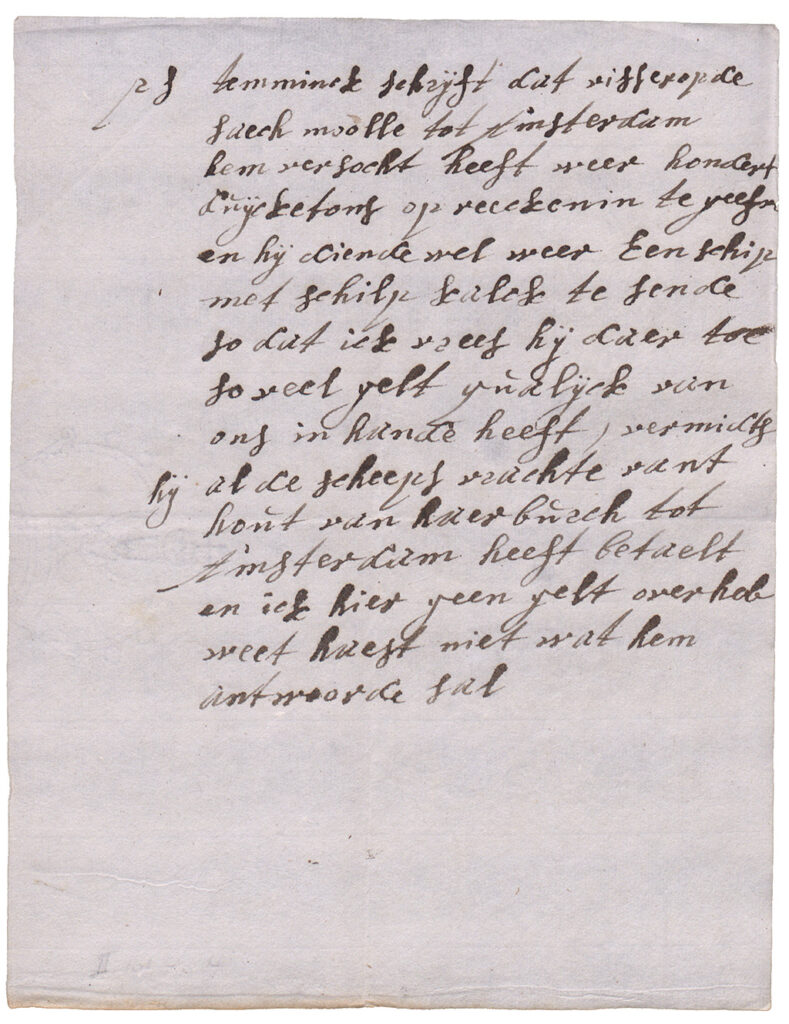 ps temminck schrijft dat visser op de
saech moolle tot Amsterdam
hem versocht heeft weer hondert
duijcketons op reeckenin te geefn
en hij diende wel weer Een schip
met schilp kalck te sende
so dat ick vrees hij daer toe
so veel gelt qualijck van
ons in hande heeft, vermidts
hij al de scheeps vrachte vant
hout van haerburch tot
Amsterdam heeft betaelt
en ick hier geen gelt over heb
weet haest niet wat hem
antwoorde sal